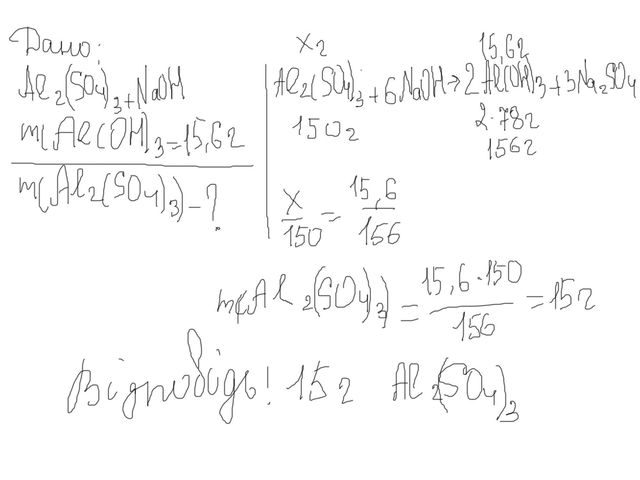 Дано:
Al₂(SO₄)₃+NaOH
m(Al(OH)₃=15,6г
m(Al₂(SO₄)₃)-?
xг 15,6г
Al₂(SO₄)₃+6NaOH→2Al(OH)₃+3Na₂SO₄
150г 2·78г
156г
x/150=15,6/156
m(Al₂(SO₄)₃)=15,6·150/156=15г
Відповідь! 15г Al₂(SO₄)₃